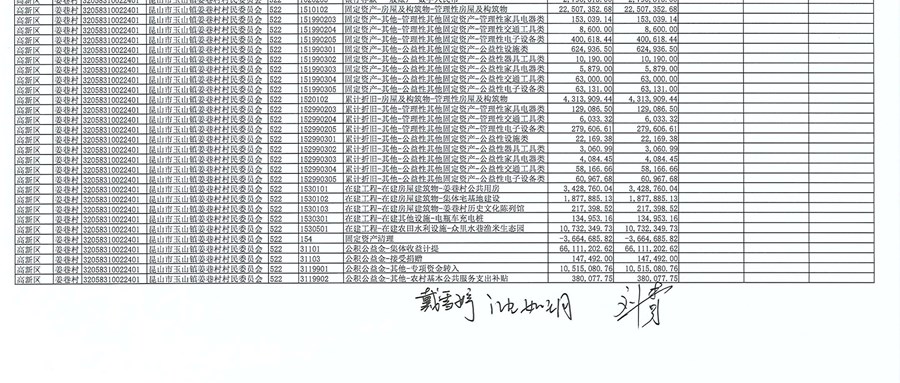 高新区 姜巷村 32058310022401 昆山市玉山镇姜巷村村民委员会 522 1510102 固定资产-房屋及构筑物-管理性房屋及构筑物 22,507,352.68 22,507,352.68
高新区 姜巷村 32058310022401 昆山市玉山镇姜巷村村民委员会 522 151990203 固定资产-其他-管理性其他固定资产-管理性家具电器类 153,039.14 153,039.14
高新区 姜巷村 32058310022401 昆山市玉山镇姜巷村村民委员会 522 151990204 固定资产-其他-管理性其他固定资产-管理性交通工具类 8,600.00 8,600.00
高新区 姜巷村 32058310022401 昆山市玉山镇姜巷村村民委员会 522 151990205 固定资产-其他-管理性其他固定资产-管理性电子设备类 400,618.44 400,618.44
高新区 姜巷村 32058310022401 昆山市玉山镇姜巷村村民委员会 522 151990301 固定资产-其他-公益性其他固定资产-公益性设施类 624,936.50 624,936.50
高新区 姜巷村 32058310022401 昆山市玉山镇姜巷村村民委员会 522 151990302 固定资产-其他-公益性其他固定资产-公益性器具工具类 10,190.00 10,190.00
高新区 姜巷村 32058310022401 昆山市玉山镇姜巷村村民委员会 522 151990303 固定资产-其他-公益性其他固定资产-公益性家具电器类 5,879.00 5,879.00
高新区 姜巷村 32058310022401 昆山市玉山镇姜巷村村民委员会 522 151990304 固定资产-其他-公益性其他固定资产-公益性交通工具类 63,000.00 63,000.00
高新区 姜巷村 32058310022401 昆山市玉山镇姜巷村村民委员会 522 151990305 固定资产-其他-公益性其他固定资产-公益性电子设备类 63,131.00 63,131.00
高新区 姜巷村 32058310022401 昆山市玉山镇姜巷村村民委员会 522 1520102 累计折旧-房屋及构筑物-管理性房屋及构筑物 4,313,909.44 4,313,909.44
高新区 姜巷村 32058310022401 昆山市玉山镇姜巷村村民委员会 522 152990203 累计折旧-其他-管理性其他固定资产-管理性家具电器类 129,086.50 129,086.50
高新区 姜巷村 32058310022401 昆山市玉山镇姜巷村村民委员会 522 152990204 累计折旧-其他-管理性其他固定资产-管理性交通工具类 6,033.32 6,033.32
高新区 姜巷村 32058310022401 昆山市玉山镇姜巷村村民委员会 522 152990205 累计折旧-其他-管理性其他固定资产-管理性电子设备类 279,606.61 279,606.61
高新区 姜巷村 32058310022401 昆山市玉山镇姜巷村村民委员会 522 152990301 累计折旧-其他-公益性其他固定资产-公益性设施类 22,169.38 22,169.38
高新区 姜巷村 32058310022401 昆山市玉山镇姜巷村村民委员会 522 152990302 累计折旧-其他-公益性其他固定资产-公益性器具工具类 3,060.99 3,060.99
高新区 姜巷村 32058310022401 昆山市玉山镇姜巷村村民委员会 522 152990303 累计折旧-其他-公益性其他固定资产-公益性家具电器类 4,084.45 4,084.45
高新区 姜巷村 32058310022401 昆山市玉山镇姜巷村村民委员会 522 152990304 累计折旧-其他-公益性其他固定资产-公益性交通工具类 58,166.66 58,166.66
高新区 姜巷村 32058310022401 昆山市玉山镇姜巷村村民委员会 522 152990305 累计折旧-其他-公益性其他固定资产-公益性电子设备类 60,967.68 60,967.68
高新区 姜巷村 32058310022401 昆山市玉山镇姜巷村村民委员会 522 1530101 在建工程-在建房屋建筑物-姜巷村公共用房 3,428,760.04 3,428,760.04
高新区 姜巷村 32058310022401 昆山市玉山镇姜巷村村民委员会 522 1530102 在建工程-在建房屋建筑物-集体宅基地建设 1,877,885.13 1,877,885.13
高新区 姜巷村 32058310022401 昆山市玉山镇姜巷村村民委员会 522 1530103 在建工程-在建房屋建筑物-姜巷村历史文化陈列馆 217,398.52 217,398.52
高新区 姜巷村 32058310022401 昆山市玉山镇姜巷村村民委员会 522 1530301 在建工程-在建其他设施-电瓶车充电桩 134,953.16 134,953.16
高新区 姜巷村 32058310022401 昆山市玉山镇姜巷村村民委员会 522 1530501 在建工程-在建农田水利设施-众里水巷渔米生态园 10,732,349.73 10,732,349.73
高新区 姜巷村 32058310022401 昆山市玉山镇姜巷村村民委员会 522 154 固定资产清理 -3,664,685.82 -3,664,685.82
高新区 姜巷村 32058310022401 昆山市玉山镇姜巷村村民委员会 522 31101 公积公益金-集体收益计提 66,111,202.62 66,111,202.62
高新区 姜巷村 32058310022401 昆山市玉山镇姜巷村村民委员会 522 31103 公积公益金-接受捐赠 147,492.00 147,492.00
高新区 姜巷村 32058310022401 昆山市玉山镇姜巷村村民委员会 522 3119901 公积公益金-其他-专项资金转入 10,515,080.76 10,515,080.76
高新区 姜巷村 32058310022401 昆山市玉山镇姜巷村村民委员会 522 3119902 公积公益金-其他-农村基本公共服务支出补贴 380,077.75 380,077.75
戴雪婷